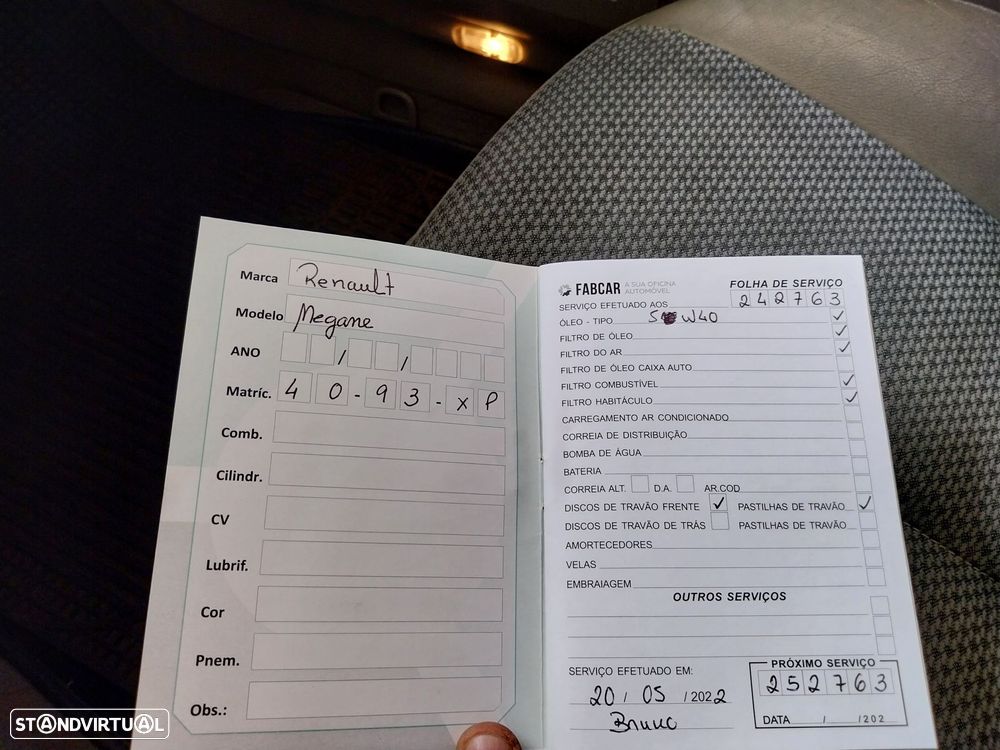 Marca Renault
Modelo Megane
ANO / /
Matríc. 40-93-XP
Comb.
Cilindr.
CV
Lubrif.
Cor
Pnem.
Obs.:
FABCAR A SUA OFICINA AUTOMÓVEL
FOLHA DE SERVIÇO
SERVIÇO EFETUADO AOS 242763
ÓLEO - TIPO 5 W40 ✓
FILTRO DE ÓLEO ✓
FILTRO DO AR ✓
FILTRO DE ÓLEO CAIXA AUTO
FILTRO COMBUSTÍVEL ✓
FILTRO HABITÁCULO ✓
CARREGAMENTO AR CONDICIONADO
CORREIA DE DISTRIBUIÇÃO
BOMBA DE ÁGUA
BATERIA
CORREIA ALT. D.A. AR.COD
DISCOS DE TRAVÃO FRENTE ✓ PASTILHAS DE TRAVÃO ✓
DISCOS DE TRAVÃO DE TRÁS PASTILHAS DE TRAVÃO
AMORTECEDORES
VELAS
EMBRAIAGEM
OUTROS SERVIÇOS
SERVIÇO EFETUADO EM:
20 / 05 / 2022
Bruno
PRÓXIMO SERVIÇO
252763
DATA / /202
STANDVIRTUAL